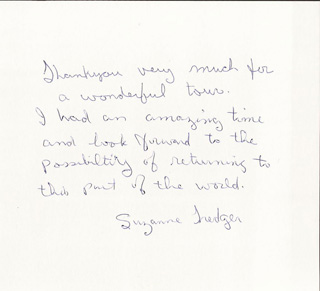 Thankyou very much for
a wonderful tour.
I had an amazing time
and look forward to the
possibiltity of returning to
this part of the world.
Suzanne